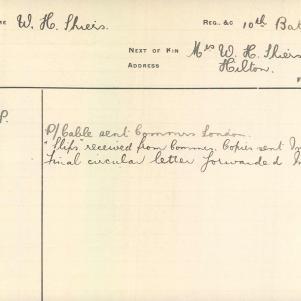 ME W. H. Shiers. REG., &C 10th Bat
NEXT OF KIN Mrs W. H. Shiers
ADDRESS Hilton.
F
P.
P/Cable sent Commrs London.
"Slips" received from Commrs. Copies sent
Final circular letter forwarded